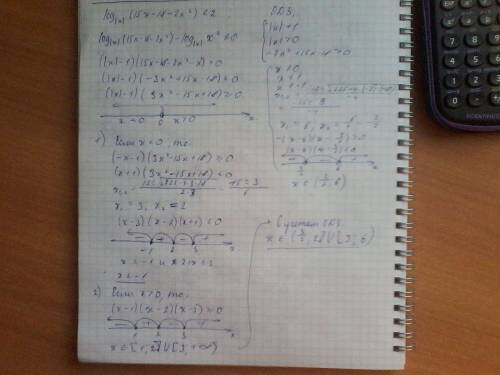 log|x| (15x-18-2x²) ≤ 2
log|x| (15x-18-2x²) - log|x| x² ≤ 0
(|x|-1)(15x-18-2x²-x²) ≤ 0
(|x|-1)(-3x²+15x-18) ≤ 0
(|x|-1)(3x²-15x+18) ≥ 0
x < 0 0 x > 0 x
1) Если x<0, то:
(-x-1)(3x²-15x+18) ≥ 0
(x+1)(3x²-15x+18) ≤ 0
x₁ = 3, x₂ = 2
(x-3)(x-2)(x+1) ≤ 0
-1 2 3 x
x ≤ -1
2) Если x>0, то:
(x-1)(x-2)(x-3) ≥ 0
1 2 3 x
x ∈ [1; 2] ∪ [3; +∞)
ОДЗ:
|x| ≠ 1
|x| > 0
-2x²+15x-18 > 0
x ≠ 0
x₁ = 6, x₂ =
-(x-6)(x-3/2) > 0
(x-6)(x-3/2) < 0
3/2 6 x
x ∈ (3/2; 6)
С учетом ОДЗ:
x ∈ (3/2; 2] ∪ [3; 6)